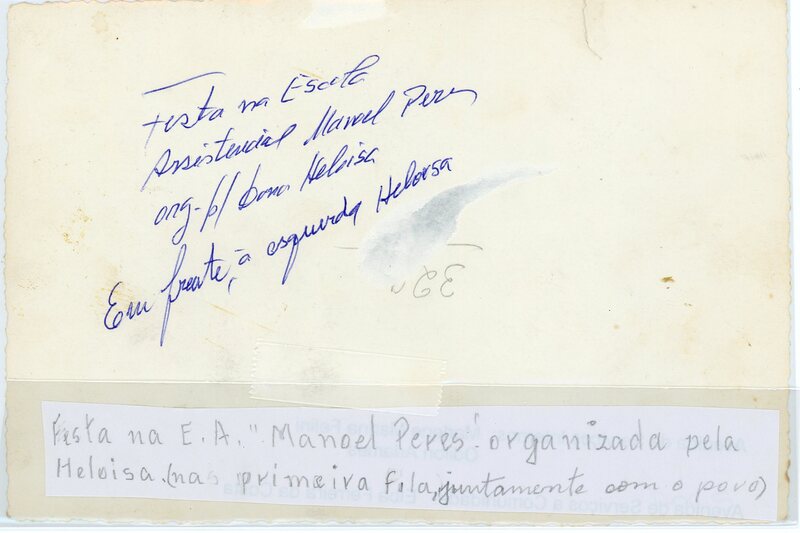 Festa na Escola
Assistencial Manoel Peres
org. p/ Dona Heloisa
Em frente, à esquerda Heloisa
Festa na E. A. "Manoel Peres" organizada pela
Heloisa. (nas primeira fila, juntamente com o povo)